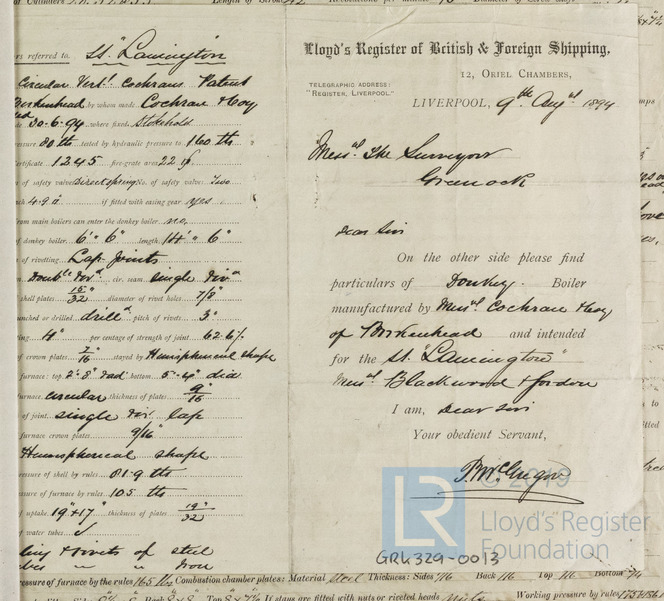 of Cylinders
Length of Stroke 42
Revolutions per minute
Diameter of
rs referred to. SS. "Lamington"
Circular Vertl Cochrans Patent
Birkenhead by whom made Cochran & Coy
30-6-94 where fixed Stokehold
essure 80 lbs tested by hydraulic pressure to 160 lbs
ertificate 1245 fire-grate area 22 sf
s of safety valves Direct spring No. of safety valves Two
ach 4.9 a" if fitted with easing gear yes
from main boilers can enter the donkey boiler no
of donkey boiler 6' 6" length 14' 6"
of riveting Lap Joints
Double riv'd cir. seam single riv'd
shell plates 15/32" diameter of rivet holes 7/8"
unched or drilled drilld pitch of rivets 3"
ing 4" per centage of strength of joint 62.6%
of crown plates 7/16" stayed by Hemispherical shape
furnace: top 2'-8" rad bottom 5'-4" dia
urnace circular thickness of plates 9/16"
of joint single riv. lap
furnace crown plates 9/16"
Hemispherical shape
ressure of shell by rules 81.9 lbs
essure of furnace by rules 105 lbs
of uptake 19" & 17" thickness of plates 19/32"
of water tubes ✓
rivets of steel
" " Iron
Lloyd's Register of British & Foreign Shipping.
12, ORIEL CHAMBERS,
TELEGRAPHIC ADDRESS:
"REGISTER, LIVERPOOL."
LIVERPOOL, 9th Augst 1894
Messrs The Surveyor
Greenock
Dear Sir
On the other side please find
particulars of Donkey Boiler
manufactured by Messrs Cochran & Coy
of Birkenhead and intended
for the SS. "Lamington"
Messrs Blackwood & Gordon
I am, Dear Sir
Your obedient Servant,
J. McGregor
© 2019
LR
Lloyd's Register
Foundation
GRK329-0013
pressure of furnace by the rules 165 lbs Combustion chamber plates: Material Steel Thickness: Sides 7/16 Back 7/16 Top 7/16 Bottom 3/4
Back 8 x 8 Top 8 x 7 1/2 If stays are fitted with nuts or riveted heads nuts Working pressure by rules